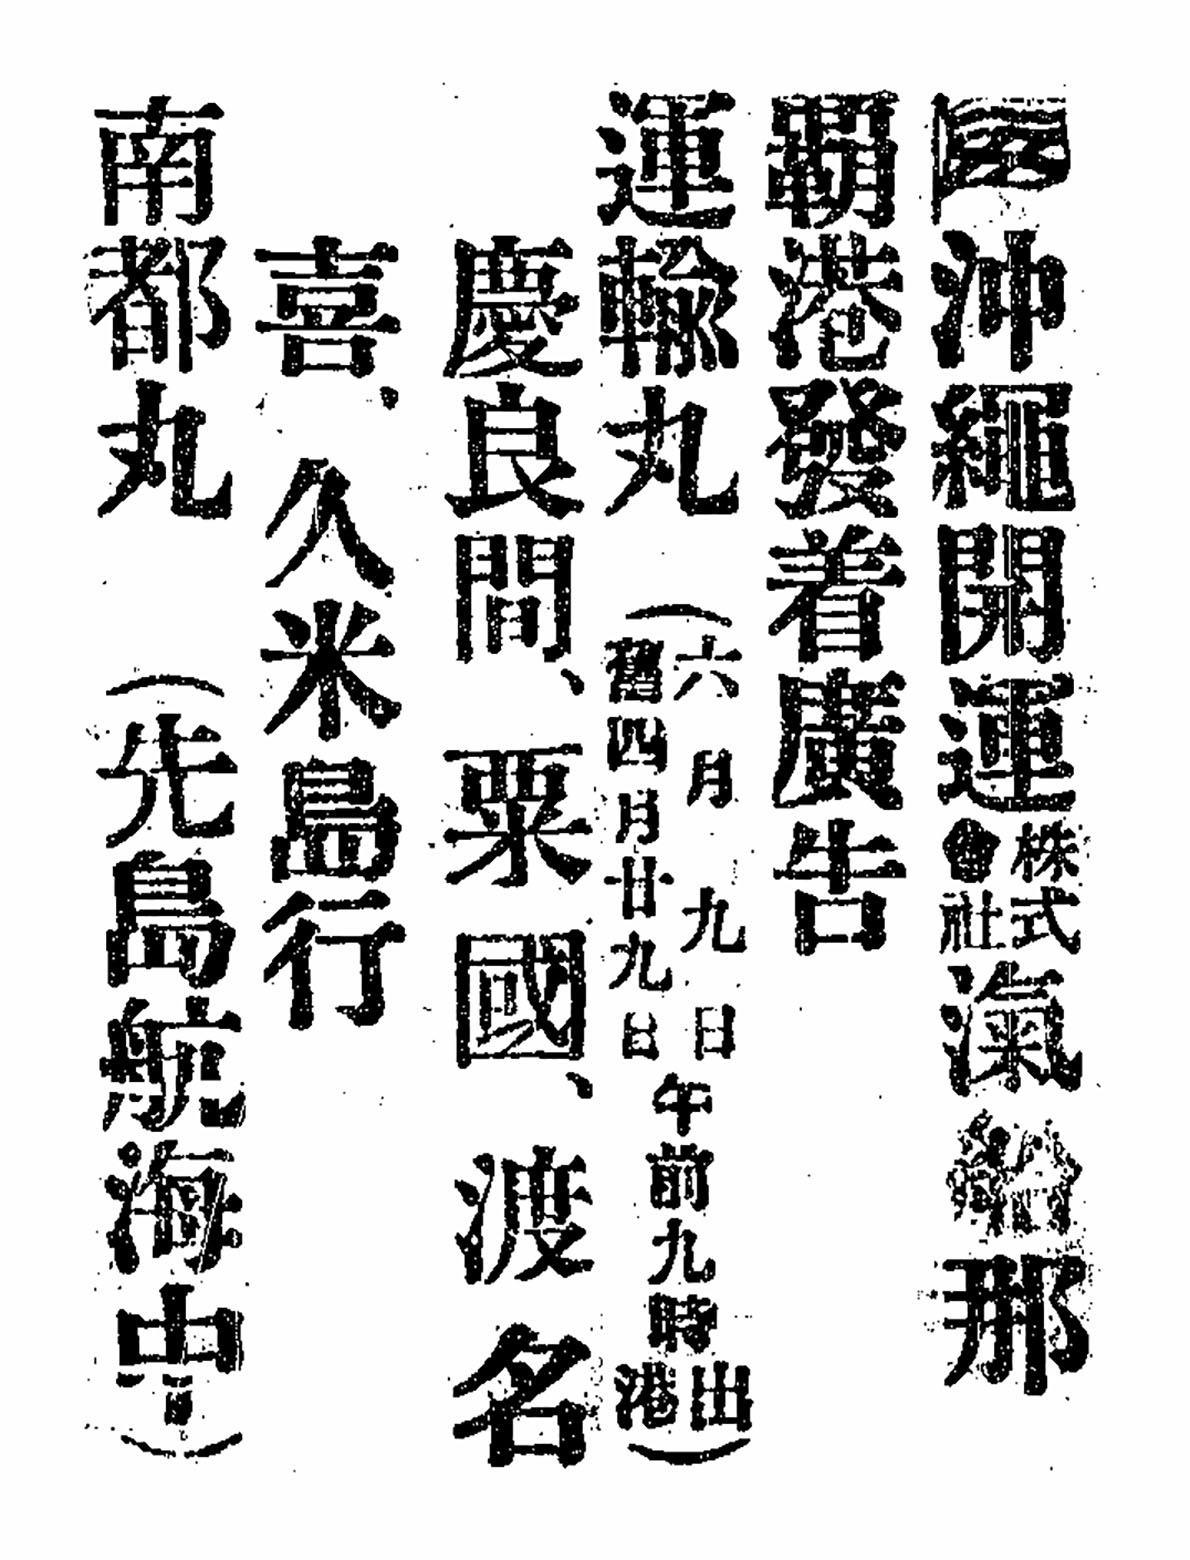 沖繩開運株式會社滊船那
覇港發着廣告
運輸丸(六月九日舊四月廿九日午前九時出港)
慶良間、粟國、渡名
喜、久米島行
南都丸(先島航海中)